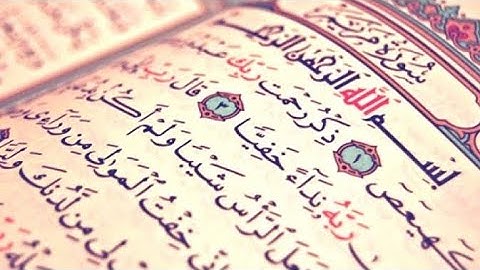 سُورَةُ مَرْيَمَ
بِسْمِ اللَّهِ الرَّحْمَٰنِ الرَّحِيمِ
كٓهيعٓصٓ ١ ذِكْرُ رَحْمَتِ رَبِّكَ
رَبَّهُ نِدَآءً خَفِيًّا ٣ قَالَ رَبِّ
الرَّأْسُ شَيْبًا وَلَمْ أَكُنْ
خِفْتُ الْمَوَٰلِيَ مِن وَرَآءِى
لِى مِن لَّدُنكَ وَلِيًّا